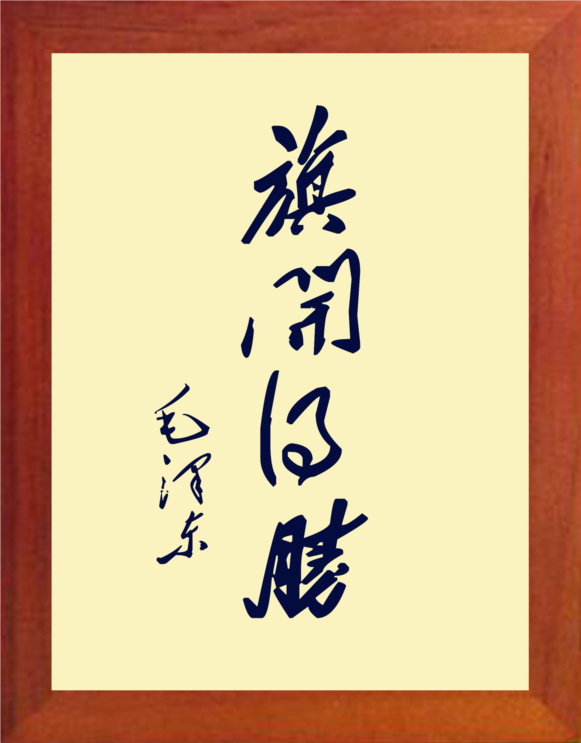 旗開得勝
毛泽东